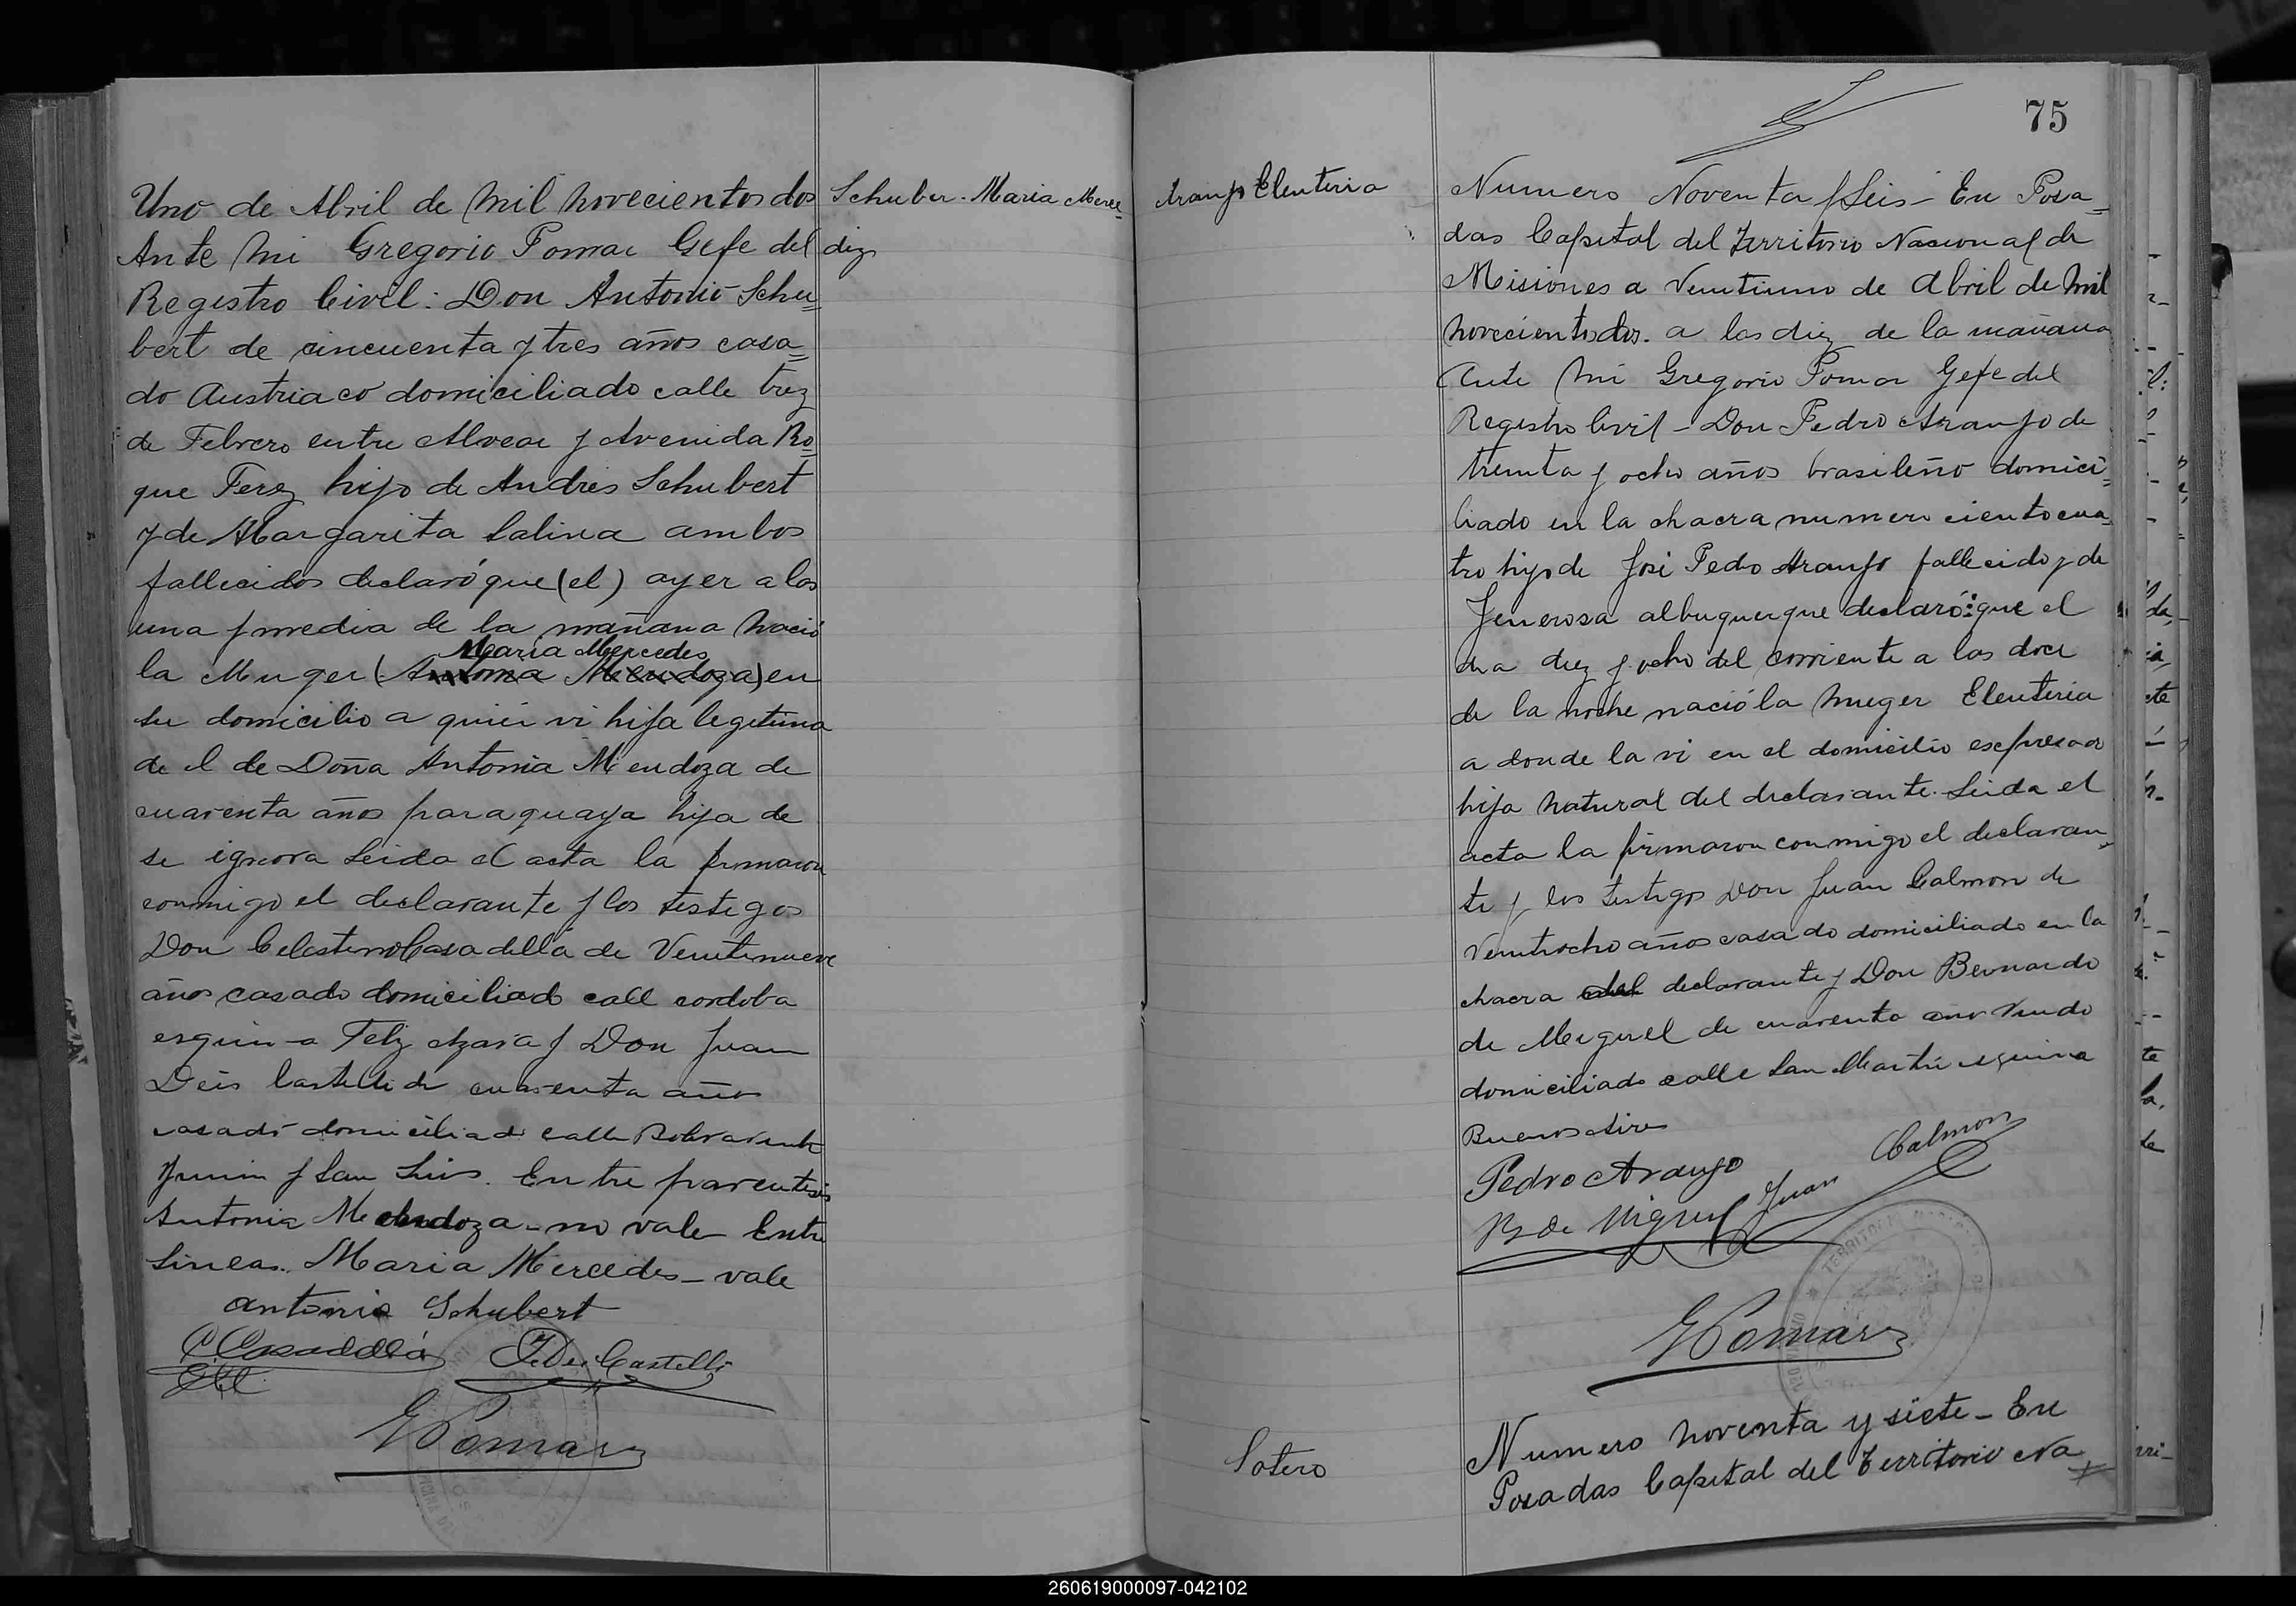 Uno de Abril de Mil novecientos dos
Ante Mi Gregorio Pomar Gefe del
Registro Civil: Don Antonio Schu=
bert de cincuenta y tres años casa=
do Austriaco domiciliado calle trez
de Febrero entre Alvear y Avenida Ro=
que Perez hijo de Andres Schubert
y de Margarita Salina ambos
fallecidos declaró que (el) ayer a las
una y media de la mañana nació
Maria Mercedes
la Muger (Antonia Mendoza) en
su domicilio a quien vi hija legitima
de el de Doña Antonia Mendoza de
cuarenta años paraguaya hija de
se ignora Leida el acta la firmaron
conmigo el declarante y los testigos
Don Celestino Casadellá de Veintinueve
años casado domiciliado call cordoba
esquin-a Feliz Azara y Don Juan
Deis Castelli de cuarenta años
casado domiciliado calle Bolivar entre
Junin y San Luis. Entre parentesis
Antonia Mendoza - no vale Entre
lineas. Maria Mercedes - vale
Antonio Schubert
C Casadellá J. Dei Castelli
G Pomar
Schuber - Maria Merce=
dez
75
Araujo Eleuteria
Numero Noventa y Seis - En Posa=
das Capital del Territorio Nacional de
Misiones a Veintiuno de Abril de Mil
novecientos dos. a las diez de la mañana
Ante Mi Gregorio Pomar Gefe del
Registro Civil - Don Pedro Araujo de
treinta y ocho años brasileño domici=
liado en la chacra numero ciento cua=
tro hijo de José Pedro Araujo fallecido y de
Jenerosa albuquerque declaró: que el
dia diez y ocho del corriente a las doce
de la noche nació la Muger Eleuteria
a donde la vi en el domicilio espresado
hija natural del declarante. Leida el
acta la firmaron conmigo el declaran=
te y los testigos Don Juan Calmon de
Veintiocho años casado domiciliado en la
chacra del declarante y Don Bernardo
de Miguel de cuarenta años Viudo
domiciliado calle San Martin esquina
Buenos Aires
Pedro Araujo
Juan Calmon
B de Miguel
G Pomar
Sotero
Numero noventa y siete - En
Posadas Capital del Territorio Na=
260619000097-042102